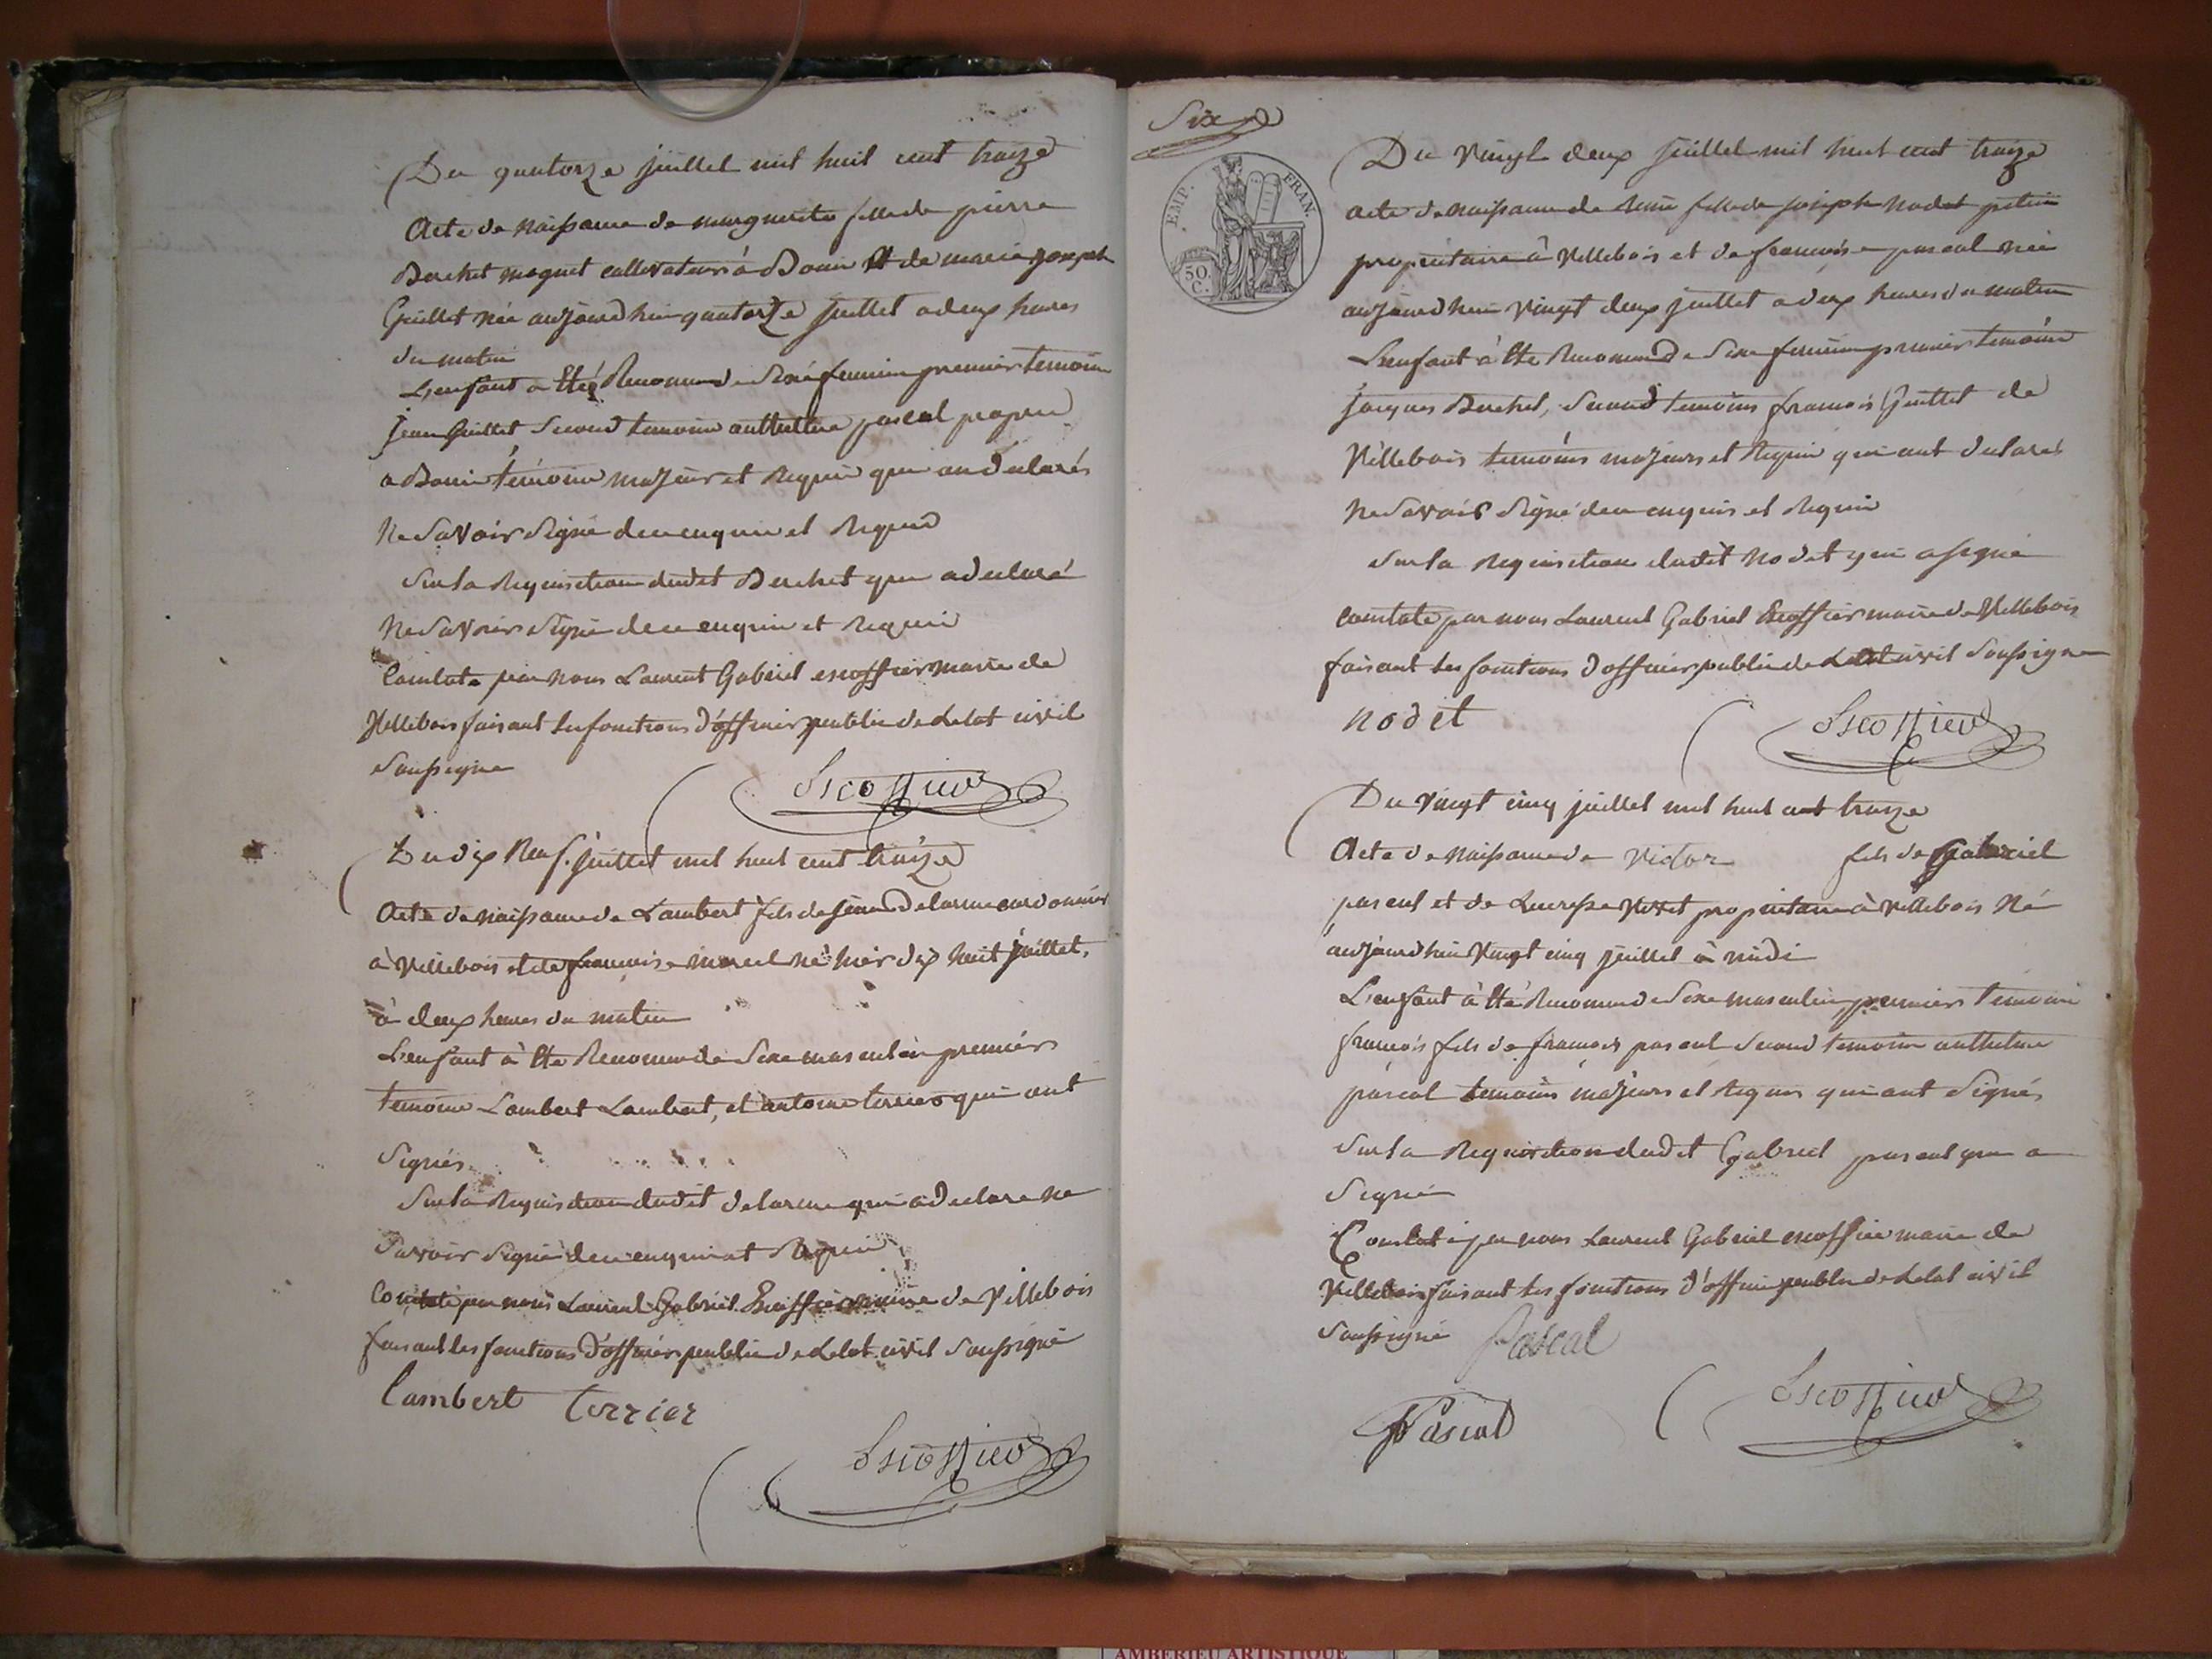 Du quatorze juillet mil huit cent treize
Acte de naissance de marguerite fille de pierre
Berchet maquet cultivateur à Bouis et de marie joseph
Guillet née aujourdhui quatorze juillet a deux heures
du matin
L'enfant a été Renommé de Sexe feminin premier temoin
jean Guillet Second temoin anthelme pascal
a Bouis témoins majeurs et Requis qui on déclarés
Ne Savoir Signé de ce enquis et Requis
Sur la Requisition dudit Berchet que a déclaré
Ne Savoir Signé de ce enquis et requis
Constaté par nous Laurent Gabriel escoffier maire de
Villebois faisant les fonctions d'officier public de Letat civil
Soussigné
Escoffier
Du dix Neuf juillet mil huit cent treize
Acte de naissance de Lambert fils de jean Delarue cordonnier
à Villebois et de francoise marcel né hier dix huit juillet,
à deux heures du matin
L'enfant à été Renommé de Sexe masculin premier
temoin Lambert Lambert, et antoine terrier qui ont
Signés
Sur la Requisition dudit delarue qui a déclaré ne
Savoir Signé de ce enquis et Requis
Constaté par nous Laurent Gabriel Escoffier maire de Villebois
faisant les fonctions d'officier public de Letat civil Soussigné
lambert terrier
Escoffier
Six
EMP. FRAN.
50. C.
Du Vingt deux juillet mil huit cent treize
acte de naissance de fille de joseph Nodet
propriétaire à Villebois et de francoise pascal née
aujourdhui Vingt deux juillet a deux heures du matin
L'enfant à été Renommé de Sexe feminin premier témoin
jacques Berchet, Second temoins francois Guillet de
Villebois temoins majeurs et Requis qui ont déclarés
Ne Savoir Signé de ce enquis et Requis
Sur la Requisition dudit Nodet qui a signé
Constaté par nous Laurent Gabriel Escoffier maire de Villebois
faisant les fonctions d'officier public de Letat civil Soussigné
nodet
Escoffier
Du Vingt cinq juillet mil huit cent treize
Acte de Naissance de Victor fils de Gabriel
pascal et de propriétaire à Villebois Né
aujourdhui Vingt cinq juillet à midi
L'enfant à été Renommé de Sexe masculin, premier temoin
francois fils de francois pascal Second temoin anthelme
pascal temoins majeurs et Requis qui ont Signés
Sur la Requisition dudit Gabriel pascal qui a
Signé
Constaté par nous Laurent Gabriel escoffier maire de
Villebois faisant les fonctions d'officier public de Letat civil
Soussigné Pascal
Pascal
Escoffier
AMBERIEU ARTISTIQUE